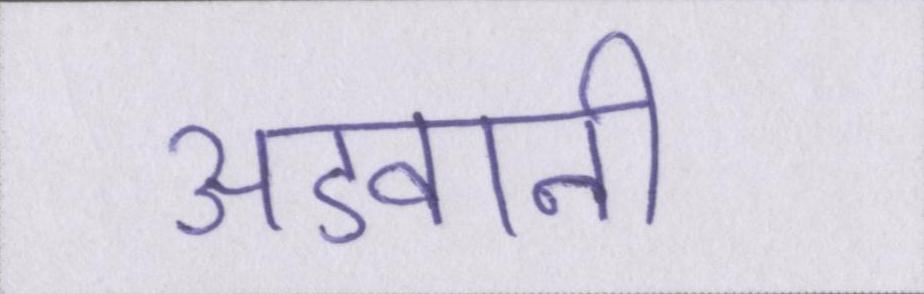 अडवानी